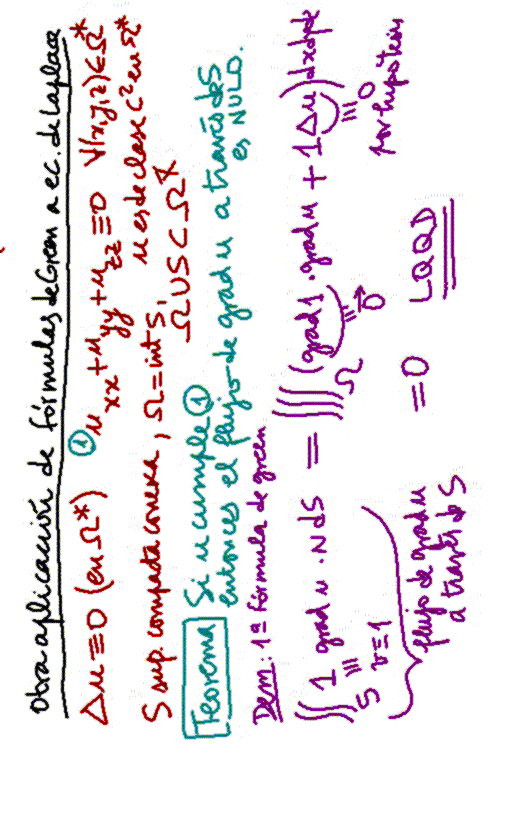 Otra aplicación de fórmulas de Green a ec. de Laplace
Δu ≡ 0 (en Ω*) ① u_xx + u_yy + u_zz ≡ 0 ∀(x,y,z) ∈ Ω*
u es de clase C² en Ω*
S sup. compacta conexa, Ω = int S, Ω ∪ S ⊂ Ω*
Teorema Si u cumple ①
entonces el flujo de grad u a través de S
es NULO.
Dem: 1ª fórmula de green
∬_S 1 grad u · N dS = ∭_Ω (grad 1 · grad u + 1 Δu) dxdydz
≡ v=1 ≡ 0⃗ ≡ 0
por hipótesis
flujo de grad u
a través de S
= 0 LQQD